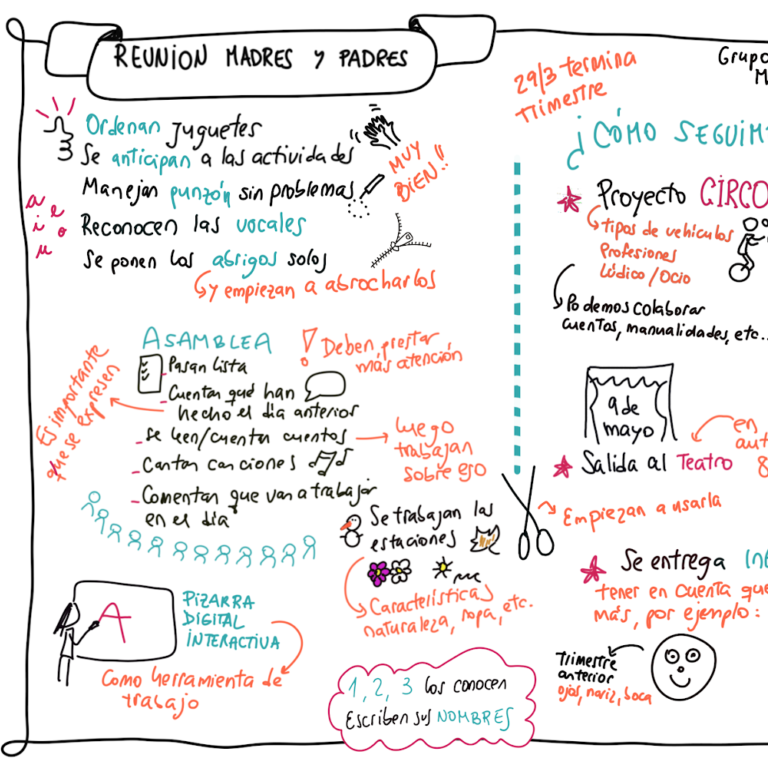 REUNION MADRES Y PADRES
Ordenan juguetes
Se anticipan a las actividades
Manejan punzón sin problemas
Reconocen las vocales
Se ponen los abrigos solos
y empiezan a abrocharlos
MUY
BIEN!!
a
e
i
o
u
ASAMBLEA
Pasan lista
- Cuentan qué han
hecho el día anterior
- Se leen/cuentan cuentos
- Cantan canciones
- Comentan que van a trabajar
en el día
! Deben prestar
más atención
Es importante
que se expresen
luego
trabajan
sobre eso
Se trabajan las
estaciones
Características
naturaleza, ropa, etc.
A
PIZARRA
DIGITAL
INTERACTIVA
Como herramienta de
trabajo
1, 2, 3 los conocen
Escriben sus NOMBRES
29/3 termina
trimestre
Grupo
M
¿CÓMO SEGUIM
Proyecto CIRCO
tipos de vehículos
Profesiones
Lúdico/Ocio
Podemos colaborar
cuentos, manualidades, etc..
9 de
mayo
en
aut
8
Salida al Teatro
Empiezan a usarla
Se entrega
tener en cuenta que
más, por ejemplo:
Trimestre
anterior
ojos, nariz, boca